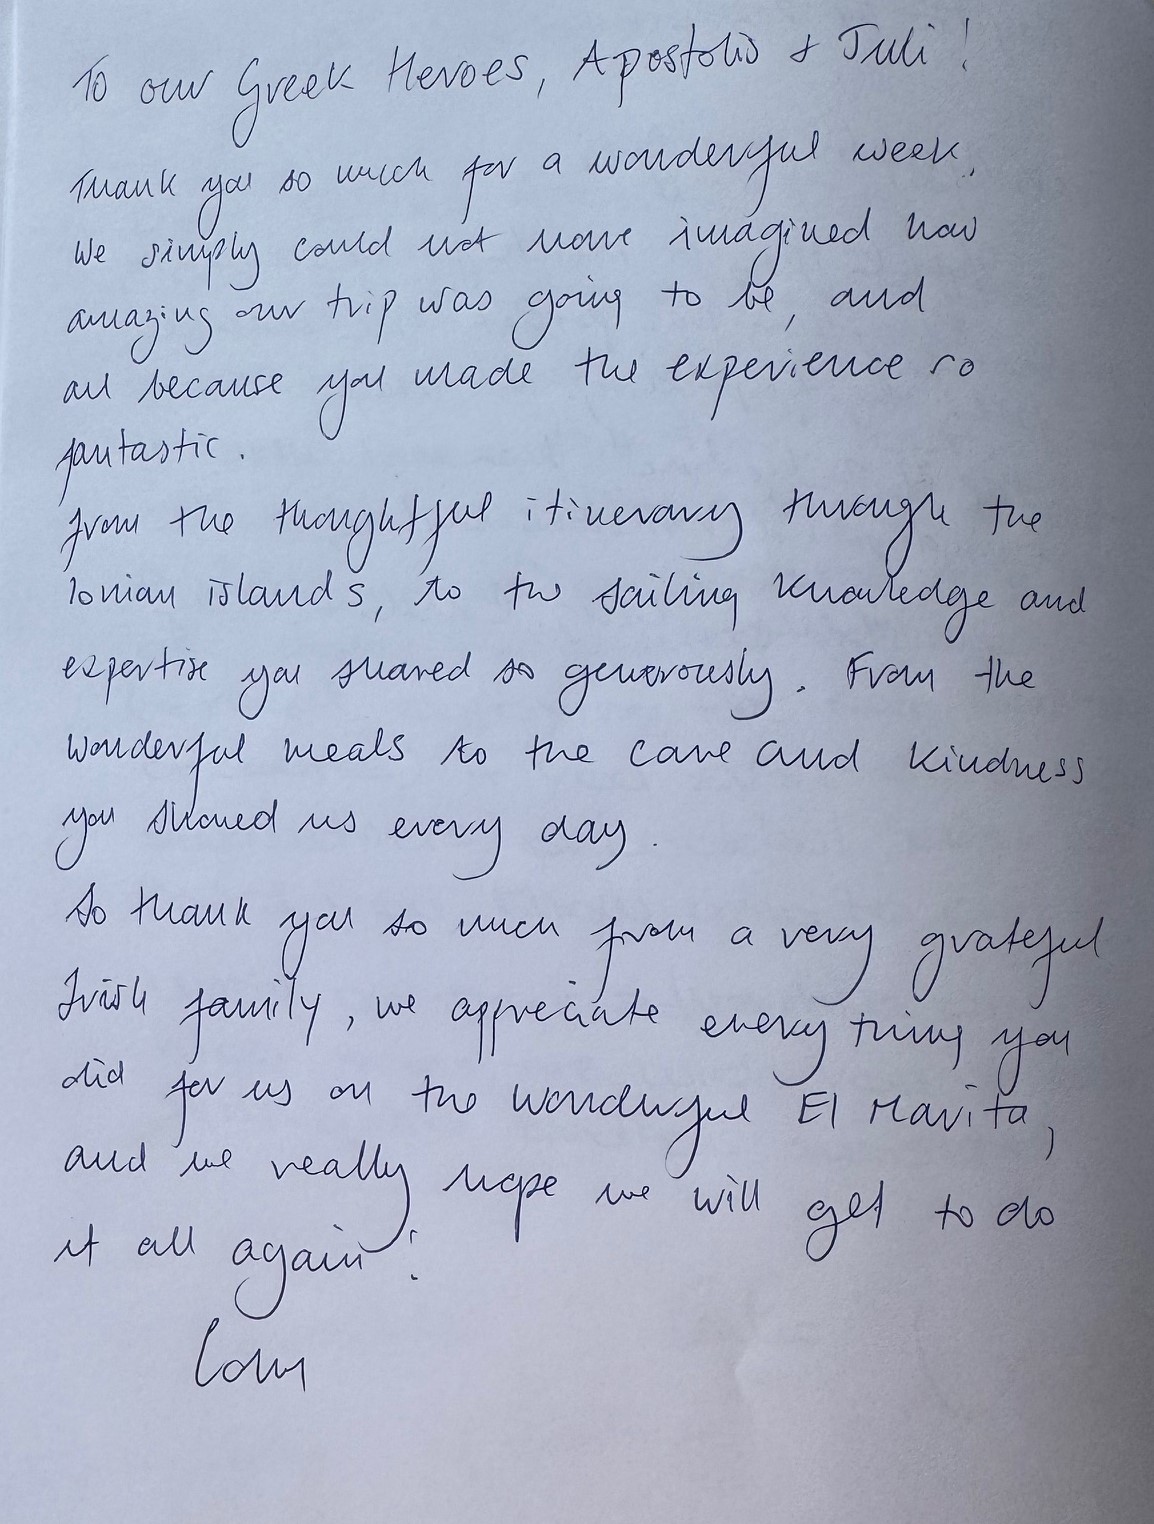 To our Greek Heroes, Apostolis & Juli!
Thank you so much for a wonderful week.
We simply could not have imagined how
amazing our trip was going to be, and
all because you made the experience so
fantastic.
From the thoughtful itinerary through the
Ionian islands, to the sailing knowledge and
expertise you shared so generously. From the
wonderful meals to the care and kindness
you showed us every day.
So thank you so much from a very grateful
Irish family, we appreciate everything you
did for us on the wonderful El Mavita,
and we really hope we will get to do
it all again!